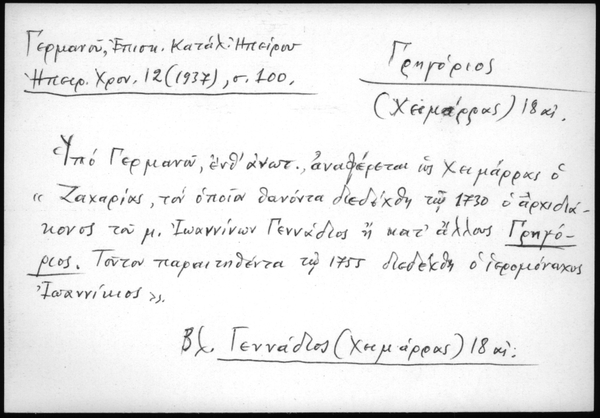 Γερμανοῦ, Ἐπισκ. Κατάλ. Ἠπείρου
Ἠπειρ. Χρον. 12 (1937), σ. 100.
Γρηγόριος
(Χειμάρρας) 18 αἰ.
Ὑπό Γερμανοῦ, ἔνθ' ἀνωτ., ἀναφέρεται ὡς Χειμάρρας ὁ
« Ζαχαρίας, τόν ὁποῖον θανόντα διεδέχθη τῷ 1730 ὁ ἀρχιδιά-
κονος τοῦ μ. Ἰωαννίνων Γεννάδιος ἤ κατ' ἄλλους Γρηγό-
ριος. Τοῦτον παραιτηθέντα τῷ 1755 διεδέχθη ὁ ἱερομόναχος
Ἰωαννίκιος ».
Βλ. Γεννάδιος (Χειμάρρας) 18 αἰ.